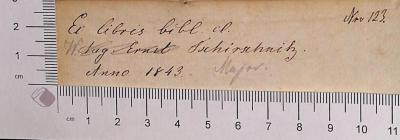 Nro 123.
Ex libris bibl. cl.
W. Sag Ernst Tschirschnitz.
Anno 1843. Major.
2
1
cm
cm 1 2 3 4 5 6 7 8 9 10 11